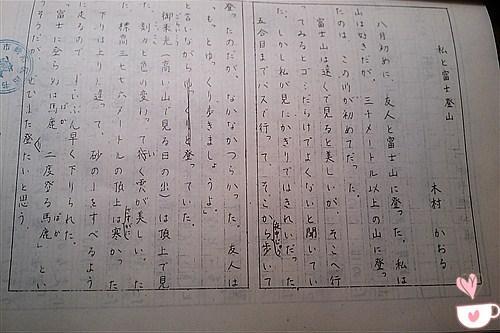 私と富士登山
木村 かおる
八月初めに、友人と富士山に登った。私は
山は好きだが、三千メートル以上の山に登っ
たのは、この川が初めてだった。
富士山は遠くで見ると美しいが、そこへ行
ってみるとゴミだらけでよくないと聞いてい
た。しかし私が見たかぎりではきれいだった。
五合目までバスで行って、そこから歩いて
登ったのだが、なかなかつらかった。友人は
、もっとゆっくり歩きましょうよ。」
と言いながら 登っていた。
御来光(高い山で見る日の出)は頂上で見
た。刻々と色の変わって行く雲が美しい。
た。標高三七七六メートルの頂上は寒かった
下りは上りと違って、砂の上をすべるよう
に走るので、ずいぶん早く下りられた。
富士に登らぬは馬鹿、二度登る馬鹿」とい
うそうだが、ぜひまた登たいと思う